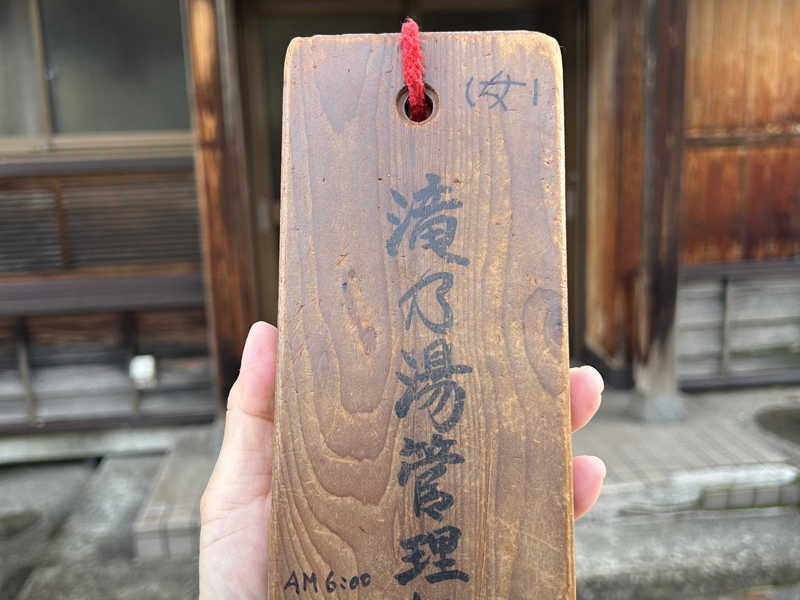 (女)
滝乃湯管理
AM 6:00